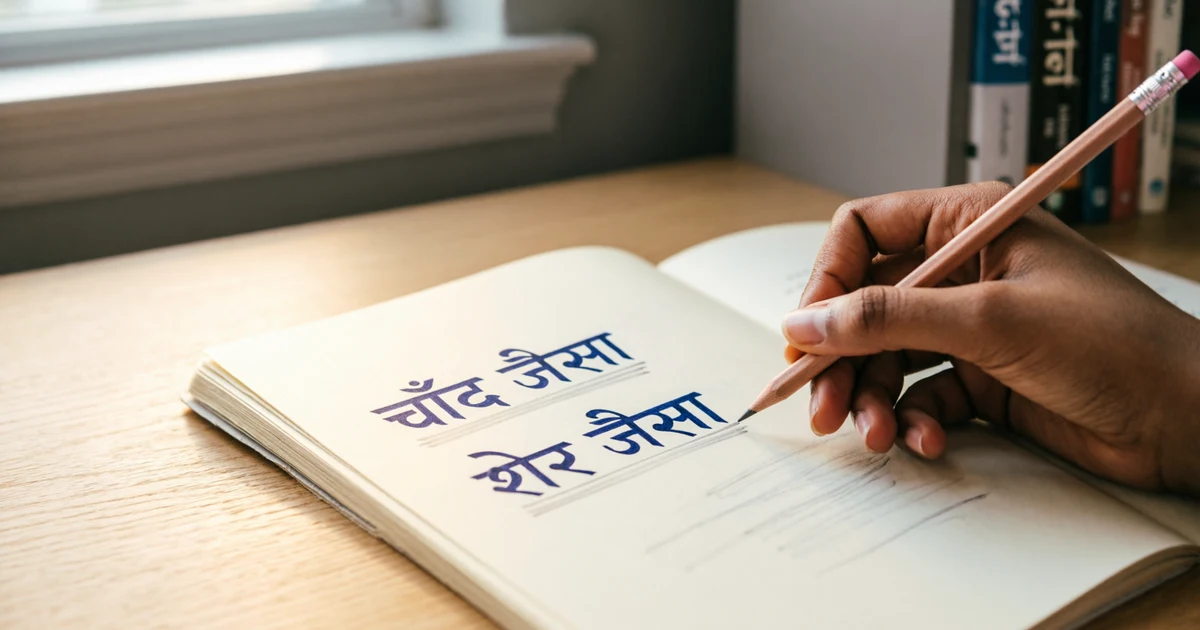 चाँद जैसा
शेर जैसा